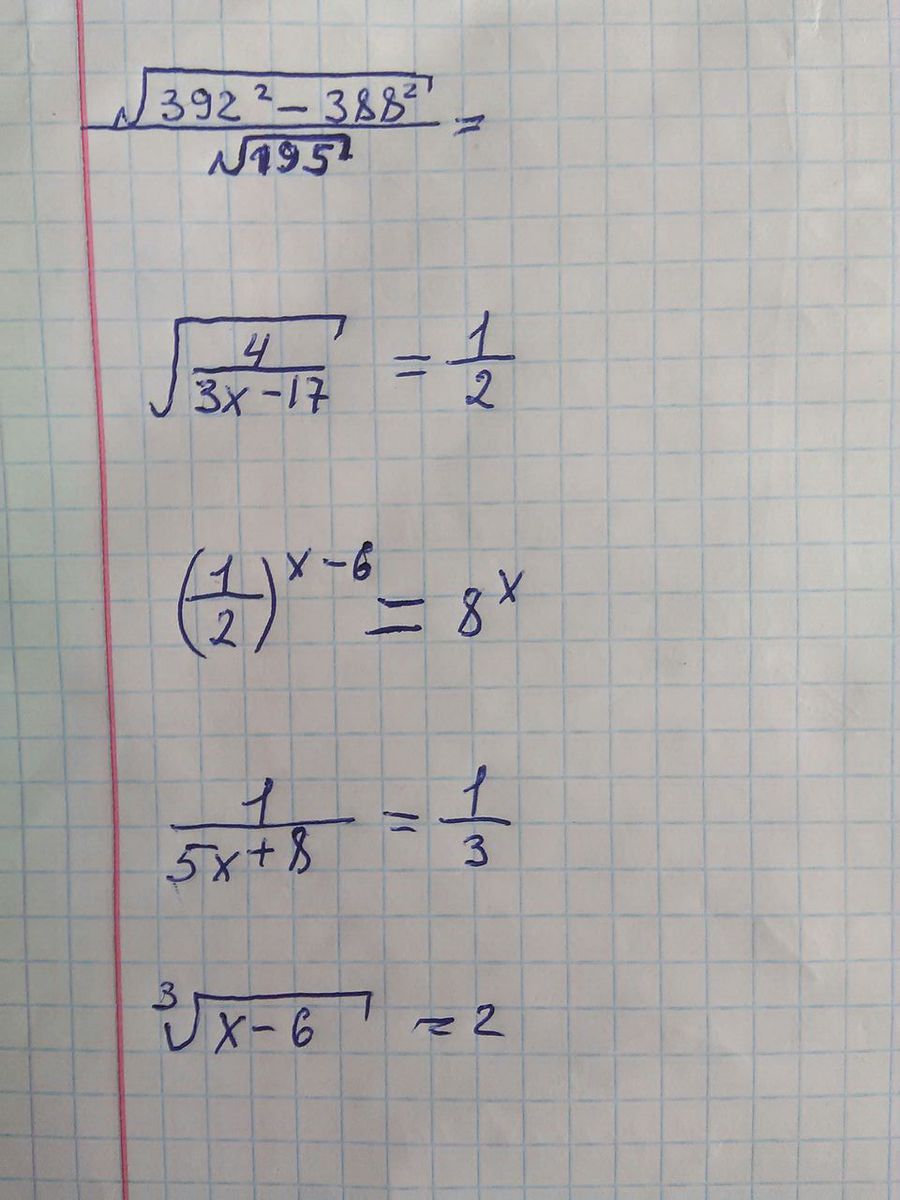 √(392² − 388²) / √195 =
√(4 / (3x − 17)) = 1/2
(1/2)^(x − 6) = 8^x
1 / (5x + 8) = 1/3
³√(x − 6) = 2